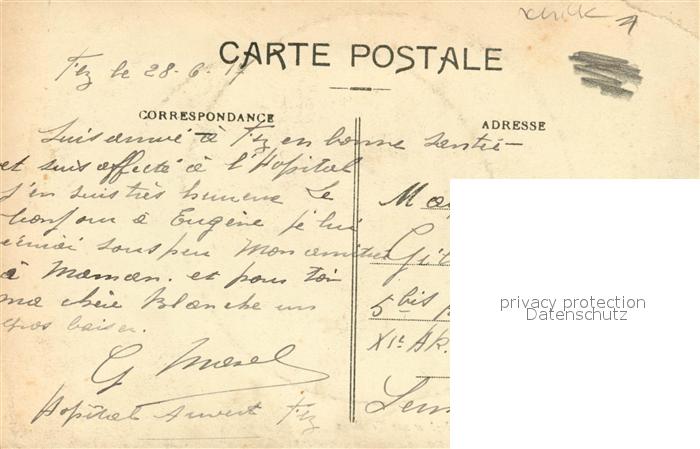 CARTE POSTALE
Fez le 28-6-17
CORRESPONDANCE
ADRESSE
Suis arrivé à Fez en bonne santé
et suis affecté à l'Hopital
j'en suis très heureux Le
bonjour à Eugène je lui
sous peu Mon amitié
à Maman. et pour toi
ma chère Blanche un
gros baiser.
G Morel
Hopital Auvert Fez
5 bis
XIe Ar.
privacy protection
Datenschutz